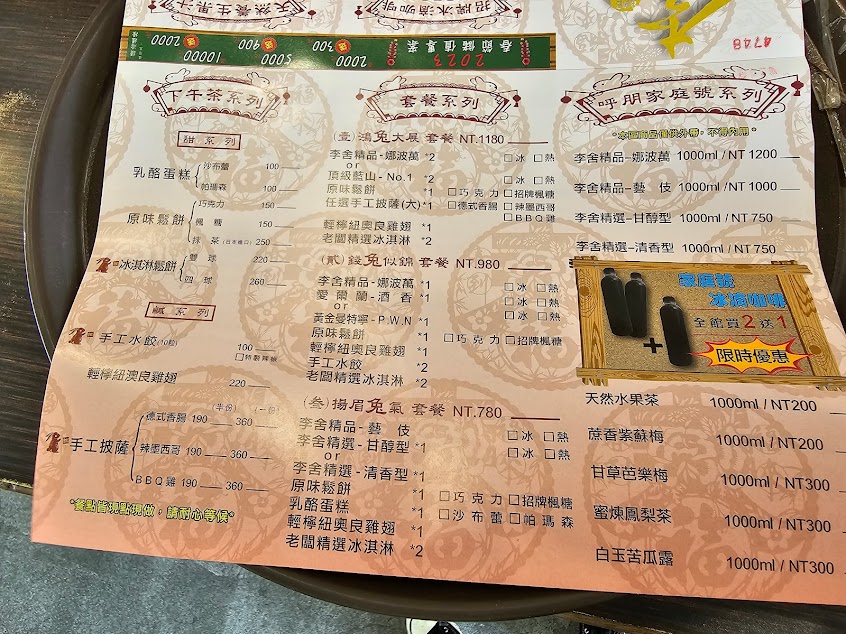 天然養生果汁
招牌冰滴咖啡
2023 春節儲值專案
2000 送 300
5000 送 400
10000 送 2000
4748
下午茶系列
甜系列
乳酪蛋糕
沙布蕾 100
帕瑪森 100
原味鬆餅
巧克力 150
楓糖 150
抹茶(日本進口) 250
冰淇淋鬆餅
雙球 220
四球 260
鹹系列
手工水餃(10粒) 100
□特製辣椒
輕檸紐澳良雞翅 220
(半份) (一份)
手工披薩
德式香腸 190 360
辣墨西哥 190 360
BBQ雞 190 360
*餐點皆現點現做，請耐心等候*
套餐系列
(壹) 鴻兔大展 套餐 NT.1180
李舍精品-娜波萬 *2 □冰 □熱
or
頂級藍山-No.1 *2 □冰 □熱
原味鬆餅 *1 □巧克力 □招牌楓糖
任選手工披薩(大)*1 □德式香腸 □辣墨西哥
□BBQ雞
輕檸紐奧良雞翅 *1
老闆精選冰淇淋 *2
(貳) 錢兔似錦 套餐 NT.980
李舍精品-娜波萬 *1 □冰 □熱
愛爾蘭-酒香 *1 □冰 □熱
or
黃金曼特寧-P.W.N *1 □冰 □熱
原味鬆餅 *1 □巧克力 □招牌楓糖
輕檸紐奧良雞翅 *1
手工水餃 *2
老闆精選冰淇淋 *2
(叁) 揚眉兔氣 套餐 NT.780
李舍精品-藝伎 □冰 □熱
李舍精選-甘醇型 *1
or
李舍精選-清香型 *1 □冰 □熱
原味鬆餅 *1 □巧克力 □招牌楓糖
乳酪蛋糕 *1 □沙布蕾 □帕瑪森
輕檸紐奧良雞翅 *1
老闆精選冰淇淋 *2
呼朋家庭號系列
*本區商品僅供外帶，不得內用*
李舍精品-娜波萬 1000ml / NT 1200
李舍精品-藝伎 1000ml / NT 1000
李舍精選-甘醇型 1000ml / NT 750
李舍精選-清香型 1000ml / NT 750
家庭號
冰滴咖啡
全館買2送1
限時優惠
天然水果茶 1000ml / NT200
蔗香紫蘇梅 1000ml / NT200
甘草芭樂梅 1000ml / NT300
蜜煉鳳梨茶 1000ml / NT300
白玉苦瓜露 1000ml / NT300